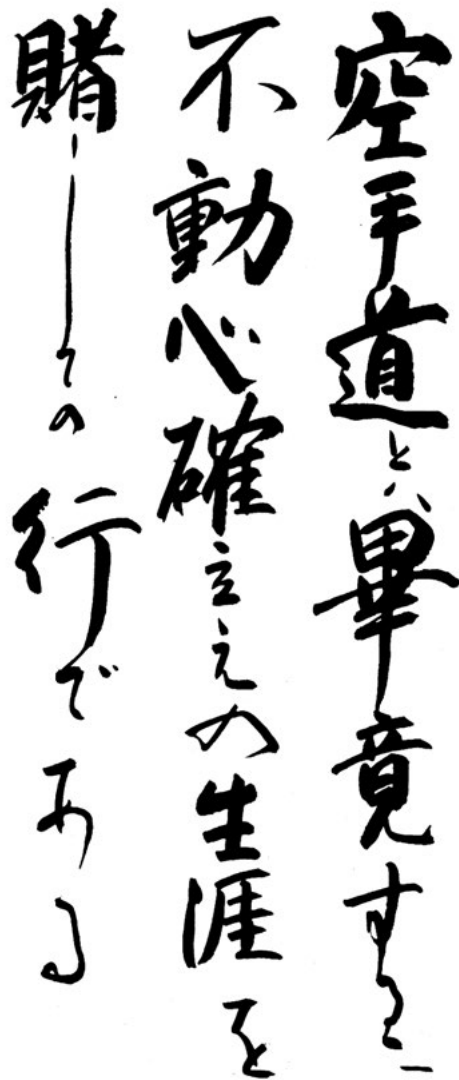 空手道とハ畢竟するに
不動心確立えの生涯を
賭しての行である